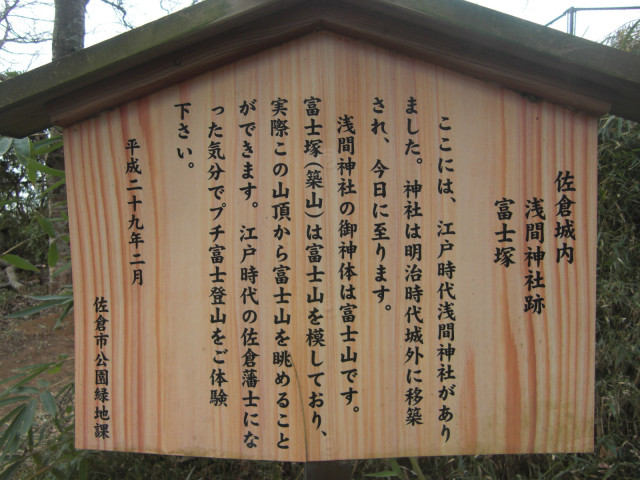 佐倉城内
浅間神社跡
富士塚
ここには、江戸時代浅間神社があり
ました。神社は明治時代城外に移築
され、今日に至ります。
浅間神社の御神体は富士山です。
富士塚(築山)は富士山を模しており、
実際この山頂から富士山を眺めること
ができます。江戸時代の佐倉藩士にな
った気分でプチ富士登山をご体験
下さい。
平成二十九年二月
佐倉市公園緑地課